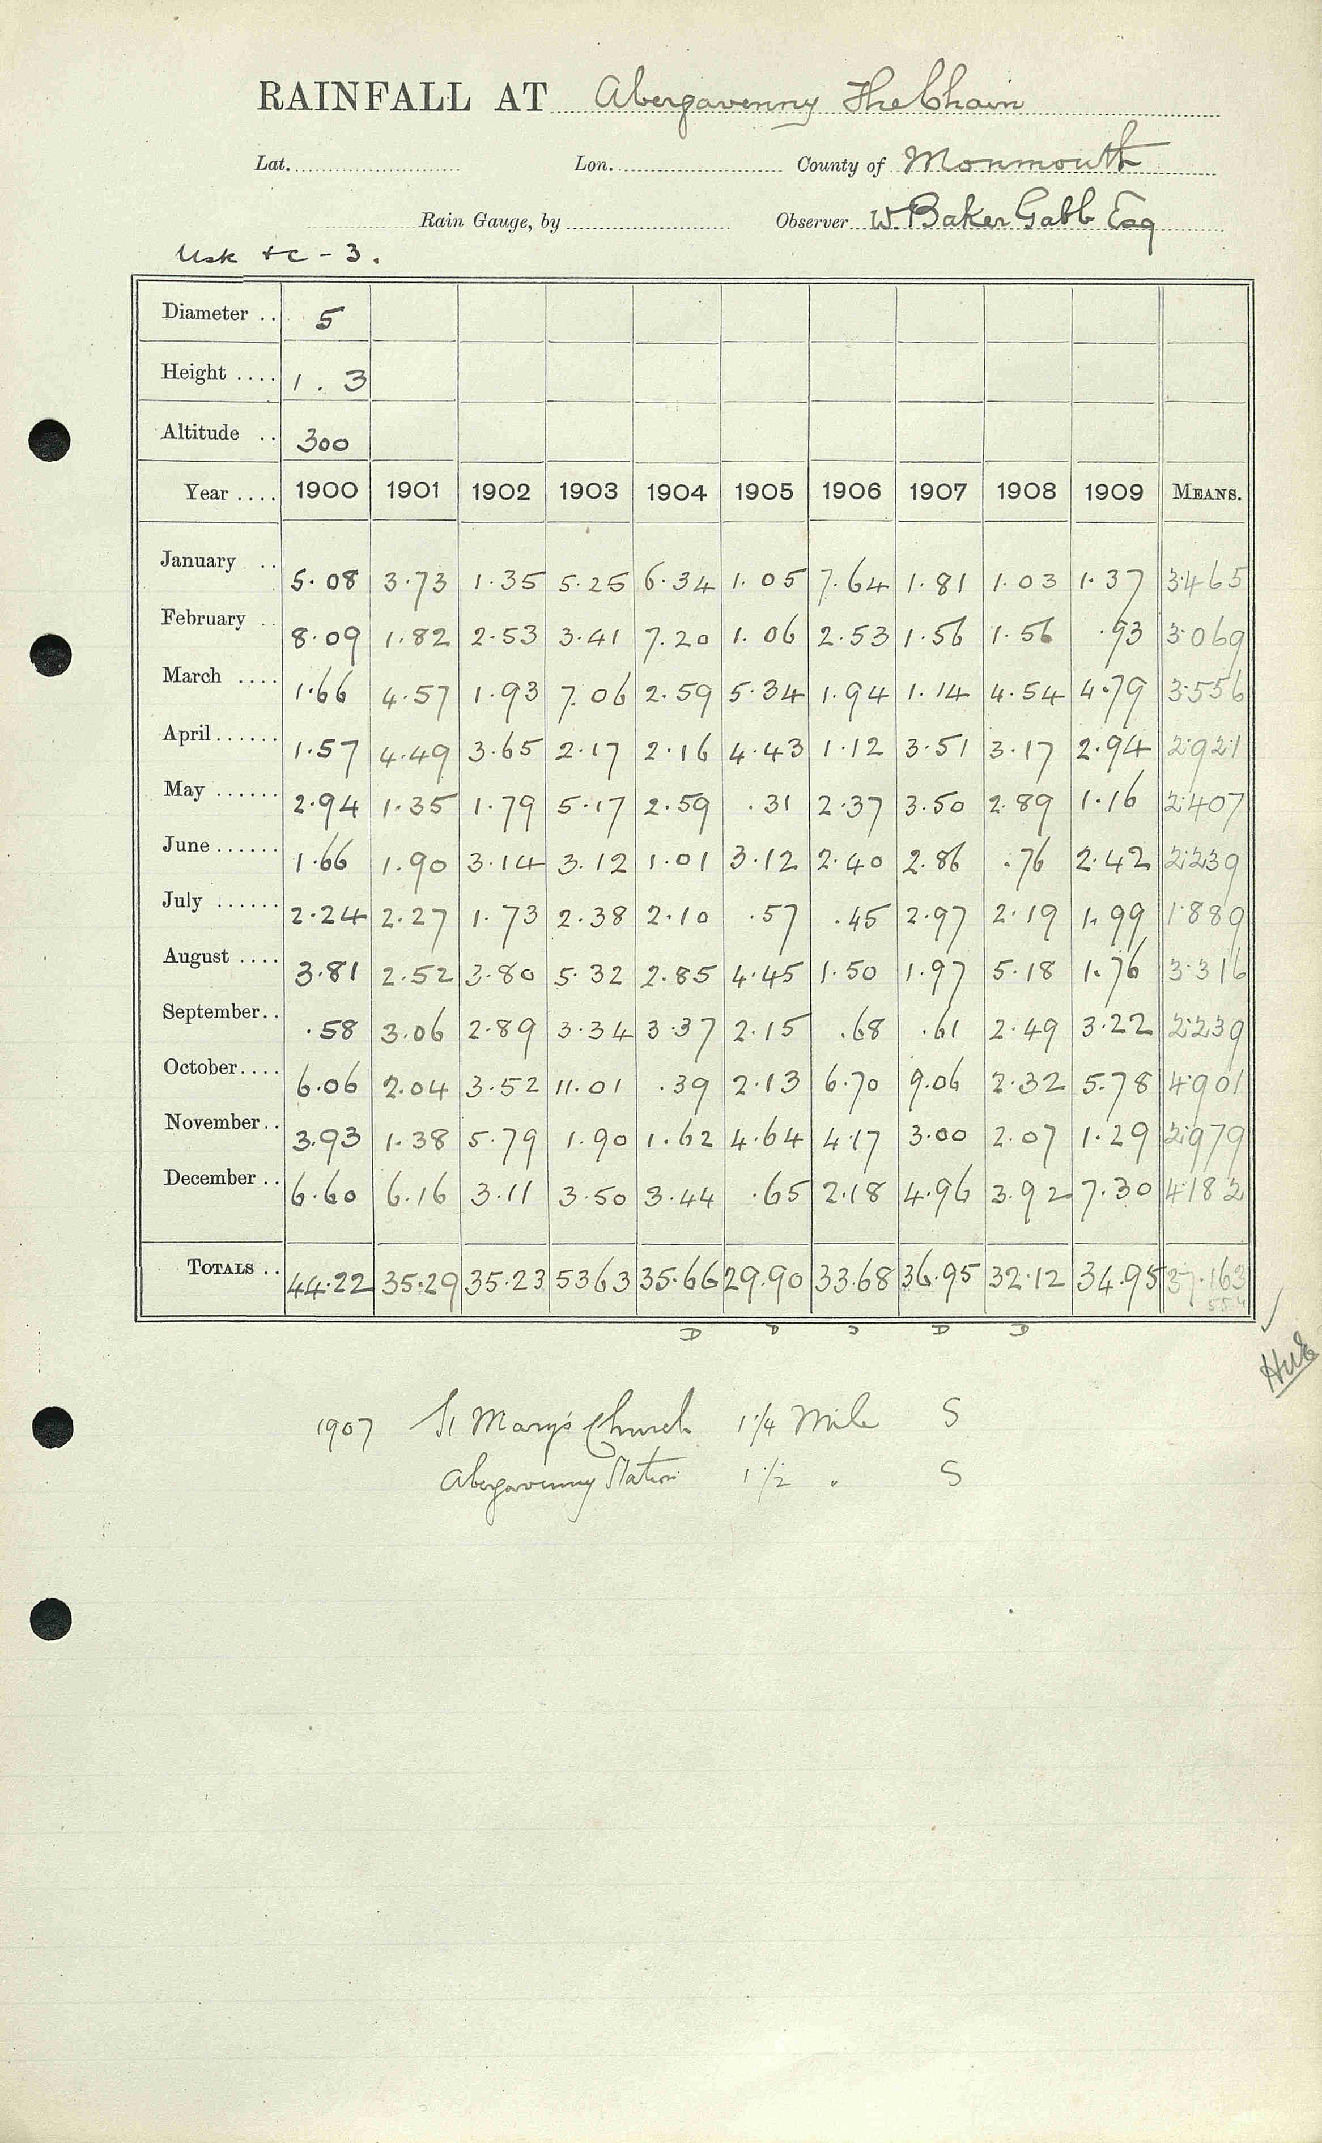 RAINFALL AT Abergavenny The Chain
Lat. Lon. County of Monmouth
Rain Gauge, by Observer W. Baker Gabb Esq
Usk +c - 3.
Diameter .. 5
Height .... 1 . 3
Altitude .. 300
Year .... 1900 1901 1902 1903 1904 1905 1906 1907 1908 1909 MEANS.
January .. 5.08 3.73 1.35 5.25 6.34 1.05 7.64 1.81 1.03 1.37 3.465
February .. 8.09 1.82 2.53 3.41 7.20 1.06 2.53 1.56 1.56 .93 3.069
March .... 1.66 4.57 1.93 7.06 2.59 5.34 1.94 1.14 4.54 4.79 3.556
April ...... 1.57 4.49 3.65 2.17 2.16 4.43 1.12 3.51 3.17 2.94 2.921
May ...... 2.94 1.35 1.79 5.17 2.59 .31 2.37 3.50 2.89 1.16 2.407
June ...... 1.66 1.90 3.14 3.12 1.01 3.12 2.40 2.86 .76 2.42 2.239
July ...... 2.24 2.27 1.73 2.38 2.10 .57 .45 2.97 2.19 1.99 1.889
August .... 3.81 2.52 3.80 5.32 2.85 4.45 1.50 1.97 5.18 1.76 3.316
September.. .58 3.06 2.89 3.34 3.37 2.15 .68 .61 2.49 3.22 2.239
October.... 6.06 2.04 3.52 11.01 .39 2.13 6.70 9.06 2.32 5.78 4.901
November.. 3.93 1.38 5.79 1.90 1.62 4.64 4.17 3.00 2.07 1.29 2.979
December .. 6.60 6.16 3.11 3.50 3.44 .65 2.18 4.96 3.92 7.30 4.182
TOTALS .. 44.22 35.29 35.23 5363 35.66 29.90 33.68 36.95 32.12 34.95 37.163
D D S D D
1907 St Mary's Church 1 1/4 Mile S
Abergavenny Station 1 1/2 " S